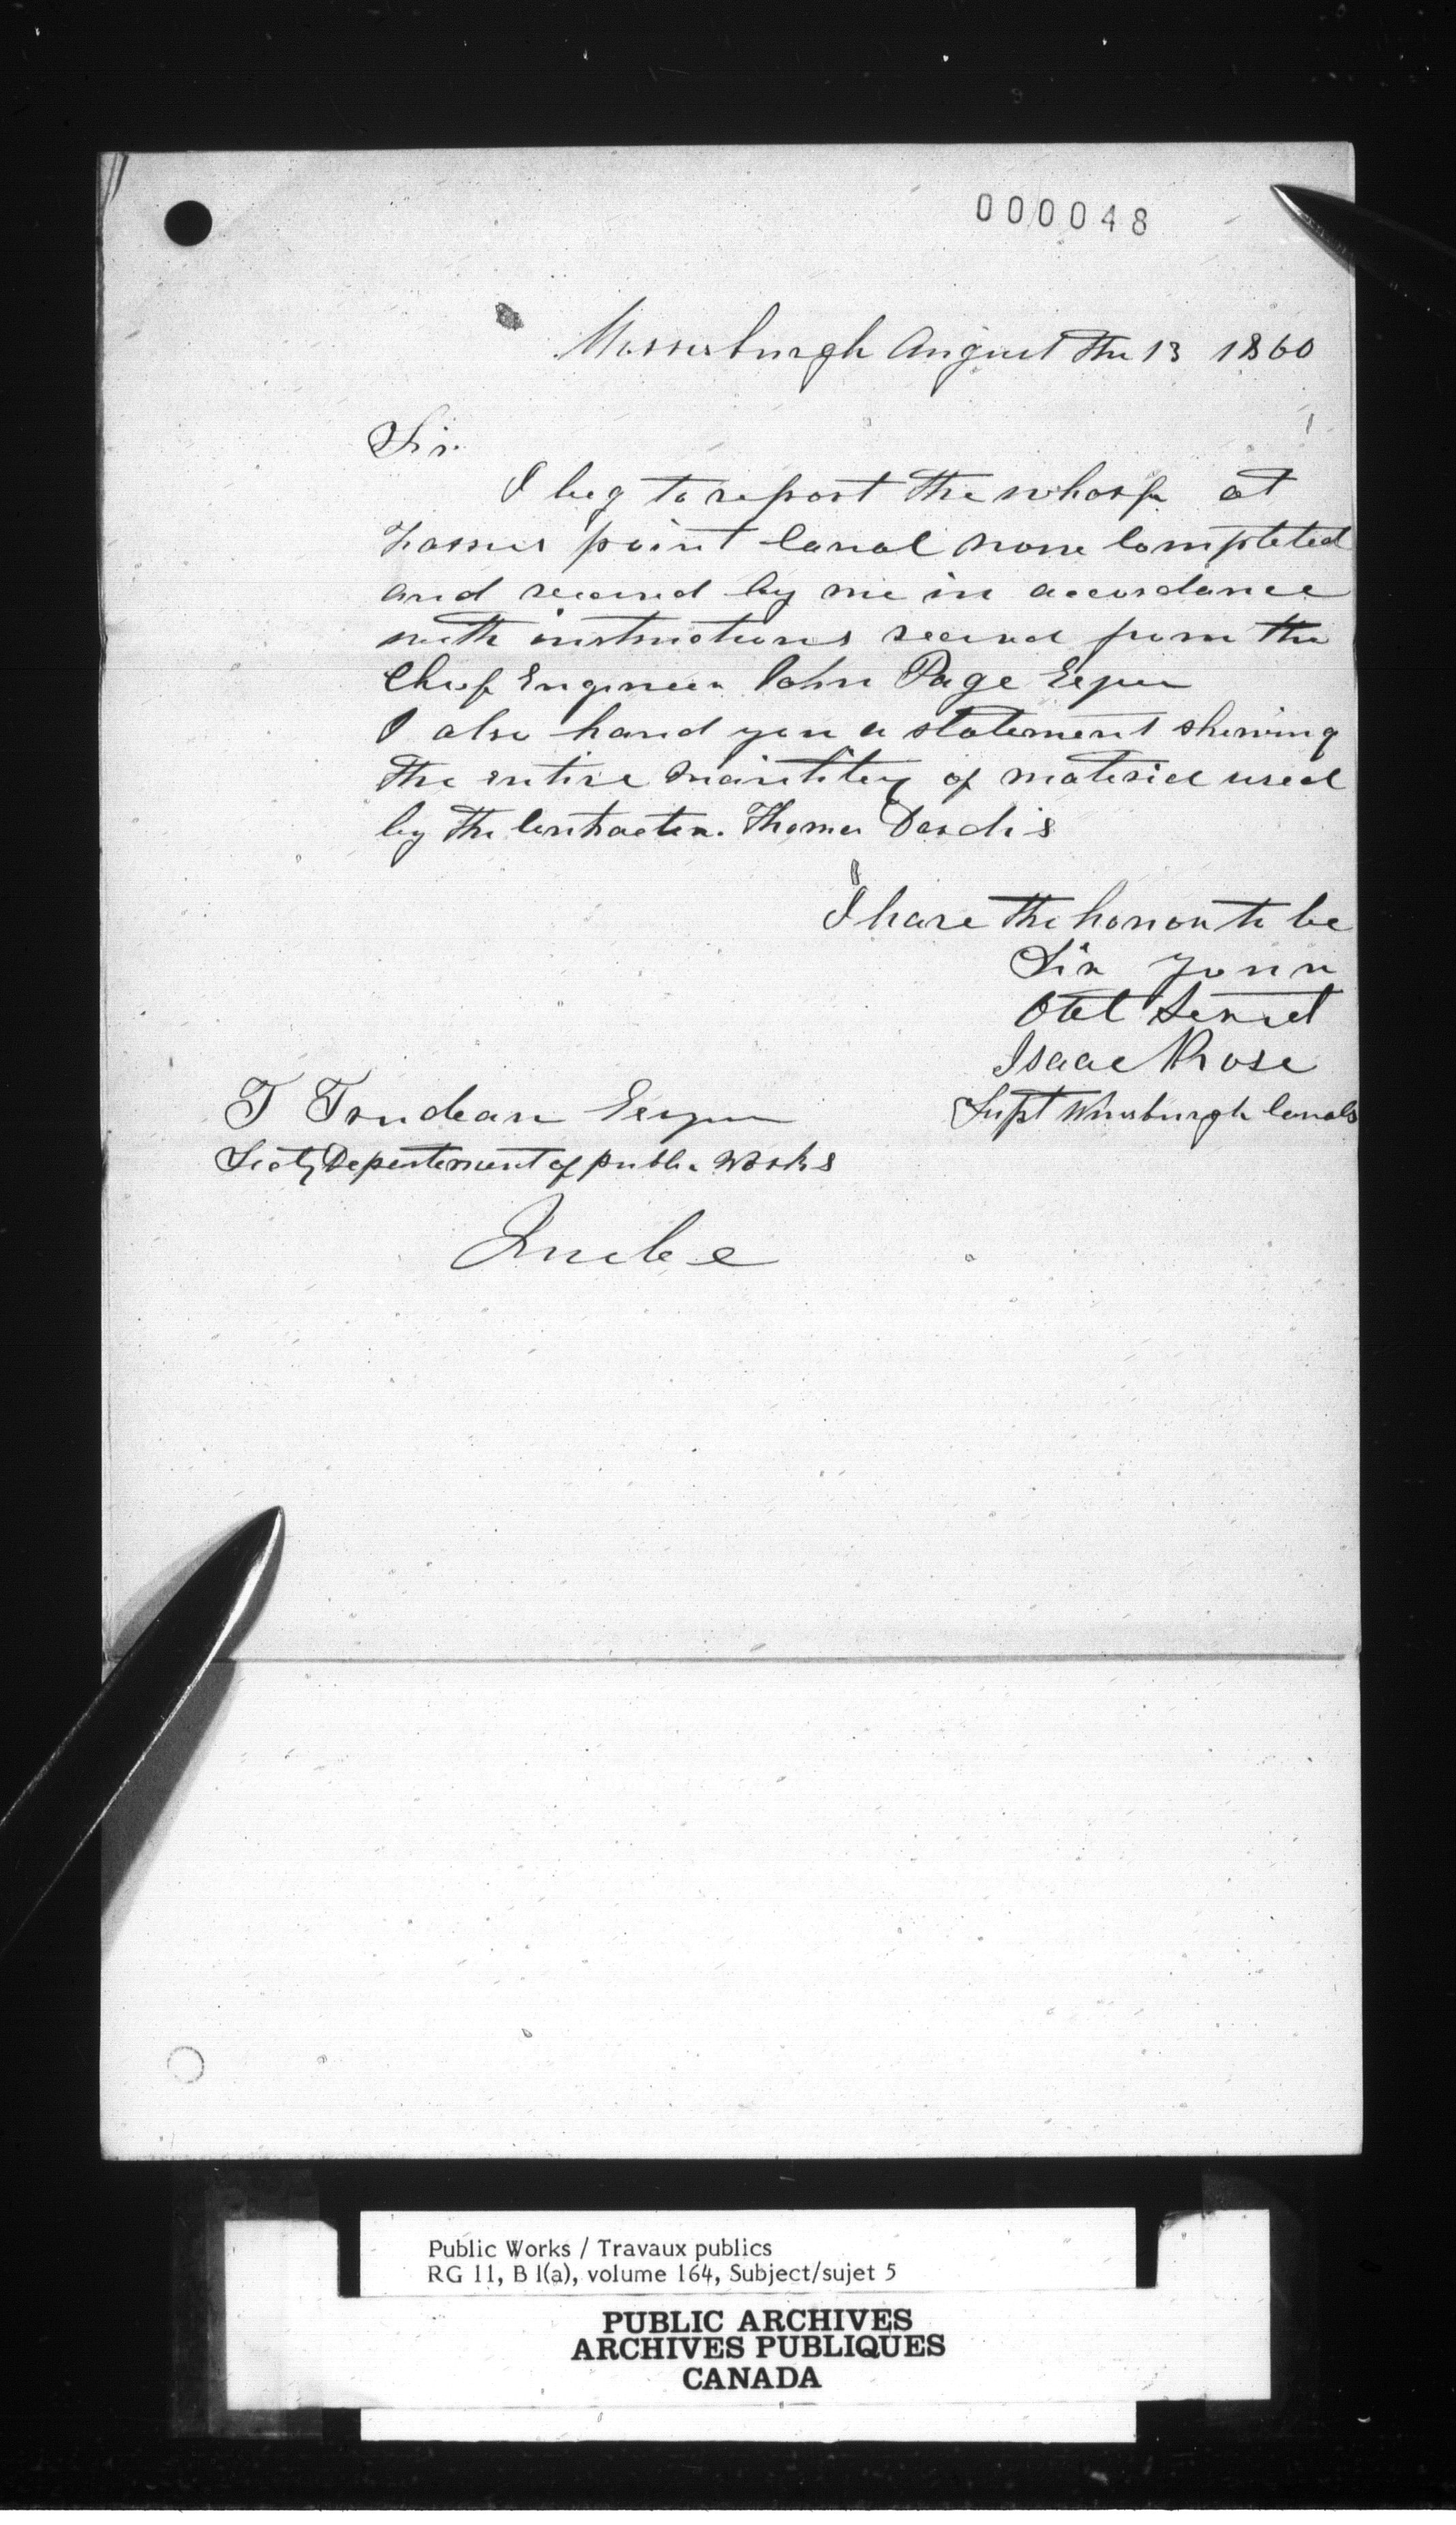 000048
Morrisburgh August the 13 1860
Sir
I beg to report the wharf at
Farrans point Canal now Completed
and receivd by me in accordance
with instructions receivd from the
Chief Engineer John Page Esqur
I also hand you a statement shewing
the entire quantitey of material used
by the Contractor Thomas Dardis
I have the honour to be
Sir your
Obt Servet
Isaac N Rose
Supt Wmsburgh Canals
T Trudeau Esqur
Secty Department of public Works
Quebe
Public Works / Travaux publics
RG 11, B 1(a), volume 164, Subject/sujet 5
PUBLIC ARCHIVES
ARCHIVES PUBLIQUES
CANADA